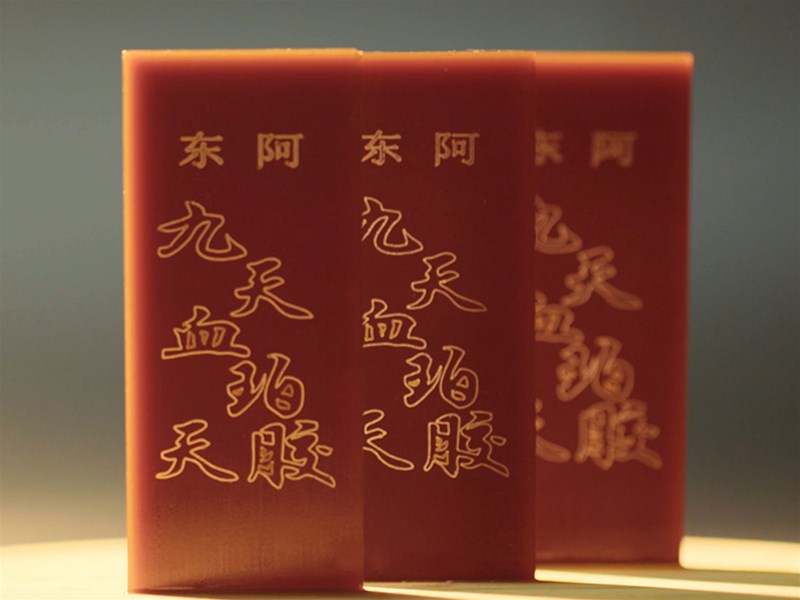 东阿
九天
血珀
天胶
东阿
九天
血珀
天胶
东阿
九天
血珀
天胶